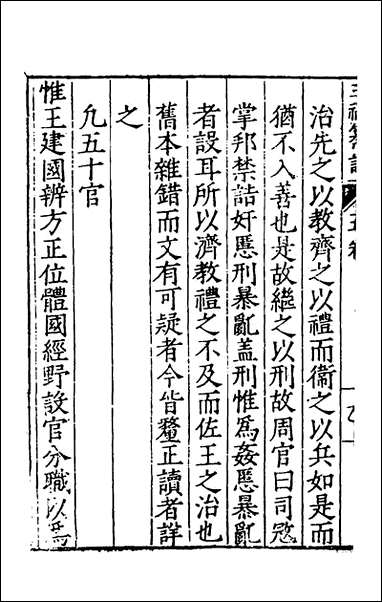 治先之以教齊之以禮而衞之以兵如是而
猶不入善也是故繼之以刑故周官曰司寇
掌邦禁詰奸慝刑暴亂盖刑惟爲姦慝暴亂
者設耳所以濟教禮之不及而佐王之治也
舊本雜錯而文有可疑者今皆釐正讀者詳
之
凢五十官
惟王建國辨方正位體國經野設官分職以爲